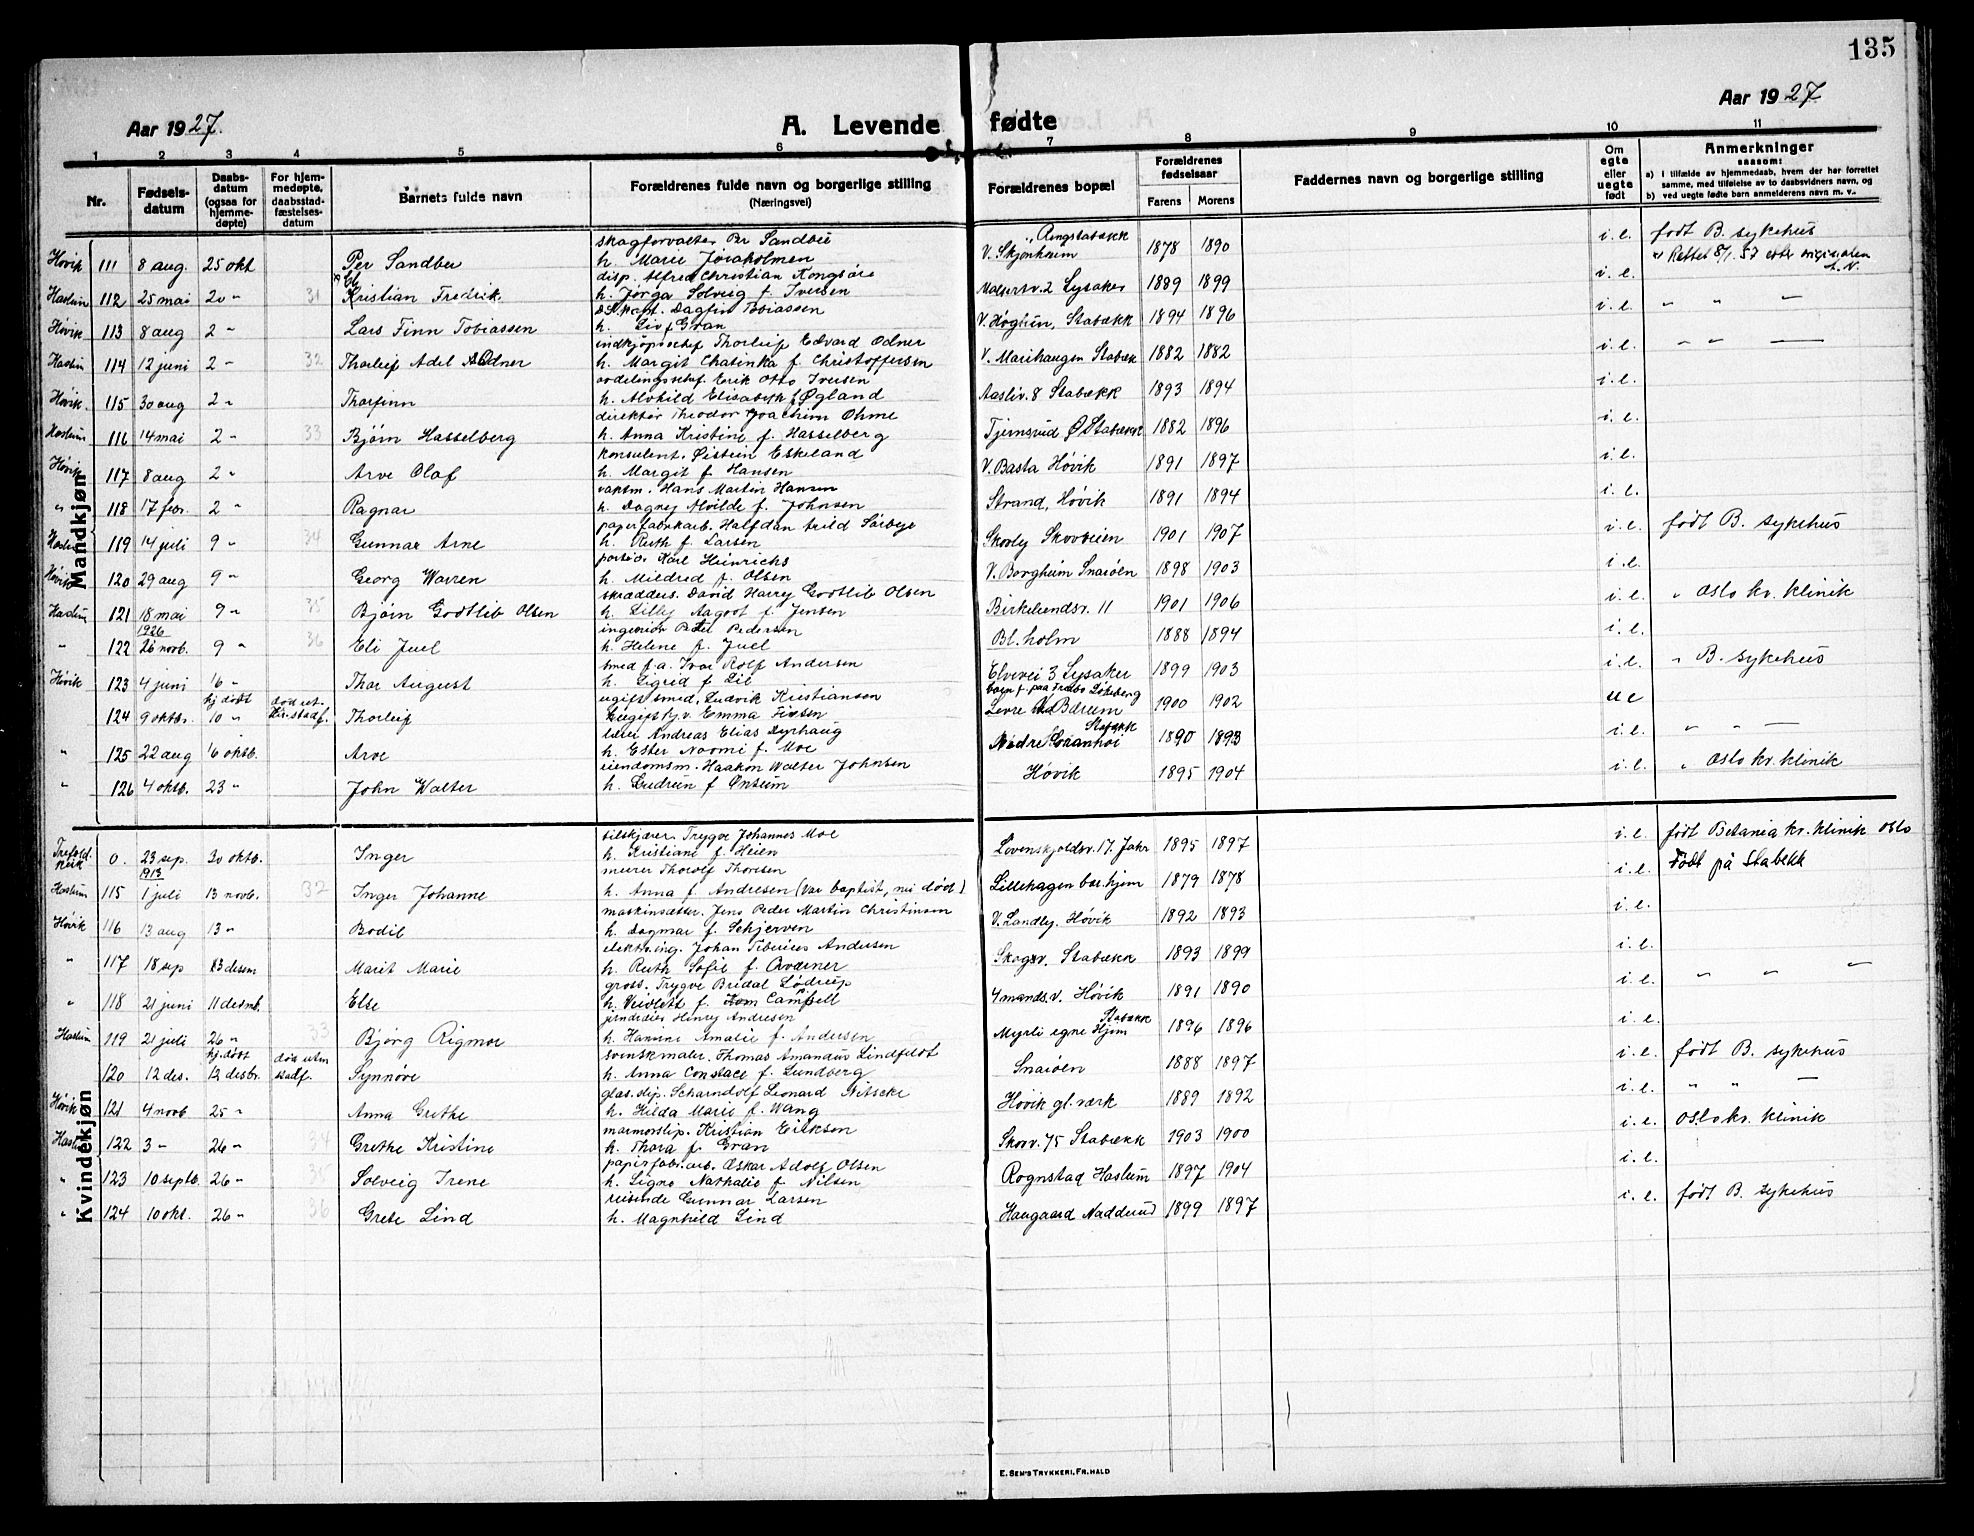 135
Aar 1927.
A. Levende fødte
Aar 1927
1 2 3 4 5 6 7 8 9 10 11
Nr.
Fødsels-
datum
Daabs-
datum
(ogsaa for
hjemme-
døpte)
For hjem-
medøpte,
daabsstad-
fæstelses-
datum
Barnets fulde navn
Forældrenes fulde navn og borgerlige stilling
(Næringsvei)
Forældrenes bopæl
Forældrenes
fødselsaar
Farens Morens
Faddernes navn og borgerlige stilling
Om
egte
eller
uegte
født
Anmerkninger
saasom:
a) I tilfælde av hjemmedaab, hvem der har forrettet
samme, med tilføielse av to daabsvidners navn, og
b) ved uegte fødte barn anmelderens navn m. v.
Mandkjøn
skogforvalter Per Sandbu Ringstabækk
Høvik 111 8 aug. 25 okt Per Sandber h. Marie V. Skjønhaim 1878 1890 i. e. født B. sykehus
Rettet 8/1.57 etter originalen
disp. Alfred Christian
Haslum 112 25 mai 20 " 31 Kristian Fredrik h. Jørga Solveig f. Iversen 2 Lysaker 1889 1899 i. e.
Dagfin Tobiassen
Høvik 113 8 aug 2 " Lars Finn Tobiassen h. Liv f Gran Stabækk 1894 1896 i. e. " " —
indkjøpschef Thorleif Edvard Odner
Haslum 114 12 juni 2 " 32 Thorleif Adel Odner h. Margit Chatinka f. Christoffersen V. Marihaugen Stabæk 1882 1882 i. e. " " —
avdelingschef. Erik Otto Iversen
Høvik. 115 30 aug 2 " Thorfinn h. Alvhild Elisabeth f Øgland Aasliv. 8 Stabækk 1893 1894 i. e.
direktør Theodor Joachim Ohme
Haslum 116 14 mai 2 " 33 Bjørn Hasselberg h. Anna Kristine f. Hasselberg Tjernsrud Ø Stabækk 1882 1896 i. e.
konsulent. Øistein Eskeland
Høvik 117 8 aug 2 " Arve Olaf h. Margit f Hansen V. Basta Høvik 1891 1897 i. e.
vaktm. Hans Martin Hansen
" 118 17 febr. 2 " Ragnar h. Dagny Alvilde f. Johnsen Strand, Høvik 1891 1894 i. e.
papirfabrikarb. Halfdan
Haslum 119 14 juli 9 " 34 Gunnar Arne h. Ruth f. Larsen Skovly Skovveien 1901 1907 i. e. født B. sykehus
portier Karl Heinrichs
Høvik 120 29 aug 9 " Georg Warren h. Mildred f. Olsen V. Borgheim Snarøen 1898 1903 i. e.
skrædders. David Harry Gottlib Olsen
Haslum 121 18 mai 9 " 35 Bjørn Godtlib Olsen h. Lilly Aagot f. Jensen Birkelundsv. 11 1901 1906 i. e. " Oslo kv. klinik
1926 ingeniør Pedersen
" 122 26 novb. 9 " 36 Eli Juel h. Helene f. Juel Bl. holm 1888 1894 i. e.
smed f.a. Ivar Rolf Andersen
Høvik 123 4 juni 16 " Thor August h. Sigrid f Lie Elvevei 3 Lysaker 1899 1903 i. e. " B. sykehus
hj. døbt død ut. ugift smed, Ludvik Kristiansen
124 9 oktbr. 10 " stadf. Thorleif Emma Levre Bærum 1900 1902 u e
lærer Andreas Elias Dyrhaug Stabækk
" 125 22 aug 16 oktb. Arve h. Ester Naomi f. Moe Nedre 1890 1893 i. e. " " —
eiendomsm. Haakon Walter Johnsen
" 126 4 oktb. 23 " John Walter h. Gudrun f Ønsum Høvik 1895 1904 i. e. " Oslo kv. klinik
Kvindekjøn
tilskjærer Trygve Johannes Moe
0. 23 sep. 30 oktb. Inger h. Kristiane f. Heien Løvenskjoldsv. 17. Jahr 1895 1897 i. e. født Betania kv. klinik Oslo
1913 murer Thorolf Thoresen
Haslum 115 1 juli 13 novb. 32 Inger Johanne h. Anna f. Andresen (var baptist, nu død) Lillehagen bar.hjem 1879 1878 i. e. Født på Stabekk
maskinsætter. Jens Peder Martin Christinsen
Høvik 116 13 aug 13 " Bodil h. Dagmar f. Schjerven V. Landly. Høvik 1892 1893 i. e.
elektr.ing. Johan Tiberius Andersen
" 117 18 sep 3 desem Marit Marie h. Ruth Sofie f. Skogsv. Stabækk 1893 1899 i. e.
gross. Trygve Bridal Lødrup
" 118 21 juni 11 desmb. Else h. f. Campbell Høvik 1891 1890 i. e. " " "
Henry Andresen Stabækk
Haslum 119 21 juli 26 " 33 Bjørg Rigmor h. Hanine Amalie f. Andersen Myrli egne Hjem 1896 1896 i. e.
hj. døbt død uten Thomas Amandus Lindfeldt
120 12 des. 12 desbr. stadf. Synnøve h. Anna Constace f. Lundberg Snarøen 1888 1897 i. e. født B. sykehus
glas.slip. Scharndolf Leonard Nitscke
Høvik 121 4 novb 25 " Anna Grethe h. Hilda Marie f. Wang Høvik gl. værk 1889 1892 i. e. " " —
marmorslip. Kristian Eriksen
Haslum 122 3 " 26 " 34 Grethe Kristine h. Thora f Gran Skovv. 75 Stabækk 1903 1900 i. e. Oslo kv. klinik
papirfabr.arb. Oskar Adolf Olsen
" 123 10 septb. 26 " 35 Solveig Irene h. Signe Nathalie f Nilsen Rognstad Haslum 1897 1904 i. e.
reisende Gunnar Larsen
" 124 10 okt. 26 " 36 Grete Lind h. Magnhild Lind Haugaard Nadderud 1899 1897 i. e. født B. sykehus
E. SEM'S TRYKKERI, FR.HALD